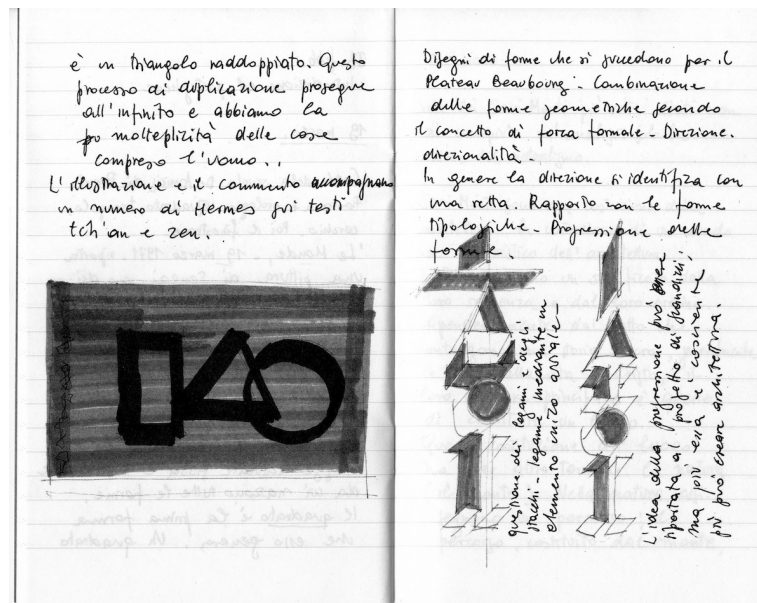 è un triangolo raddoppiato. Questo
processo di duplicazione prosegue
all'infinito e abbiamo la
molteplicità delle cose
compreso l'uomo..
L'illustrazione e il commento accompagnano
un numero di Hermes sui testi
tch'an e zen.
Disegni di forme che si succedono per il
Plateau Beaubourg - Combinazione
delle forme geometriche secondo
il concetto di forza formale - Direzione.
direzionalità -
In genere la direzione si identifica con
una retta. Rapporto con le forme
tipologiche - Progressione delle
forme.
questione dei legami e degli
stacchi - legame mediante un
elemento unito assiale -
L'idea della progressione può essere
riportata ai progetto di grandiosi;
ma più essa è cosciente
più può creare architettura.